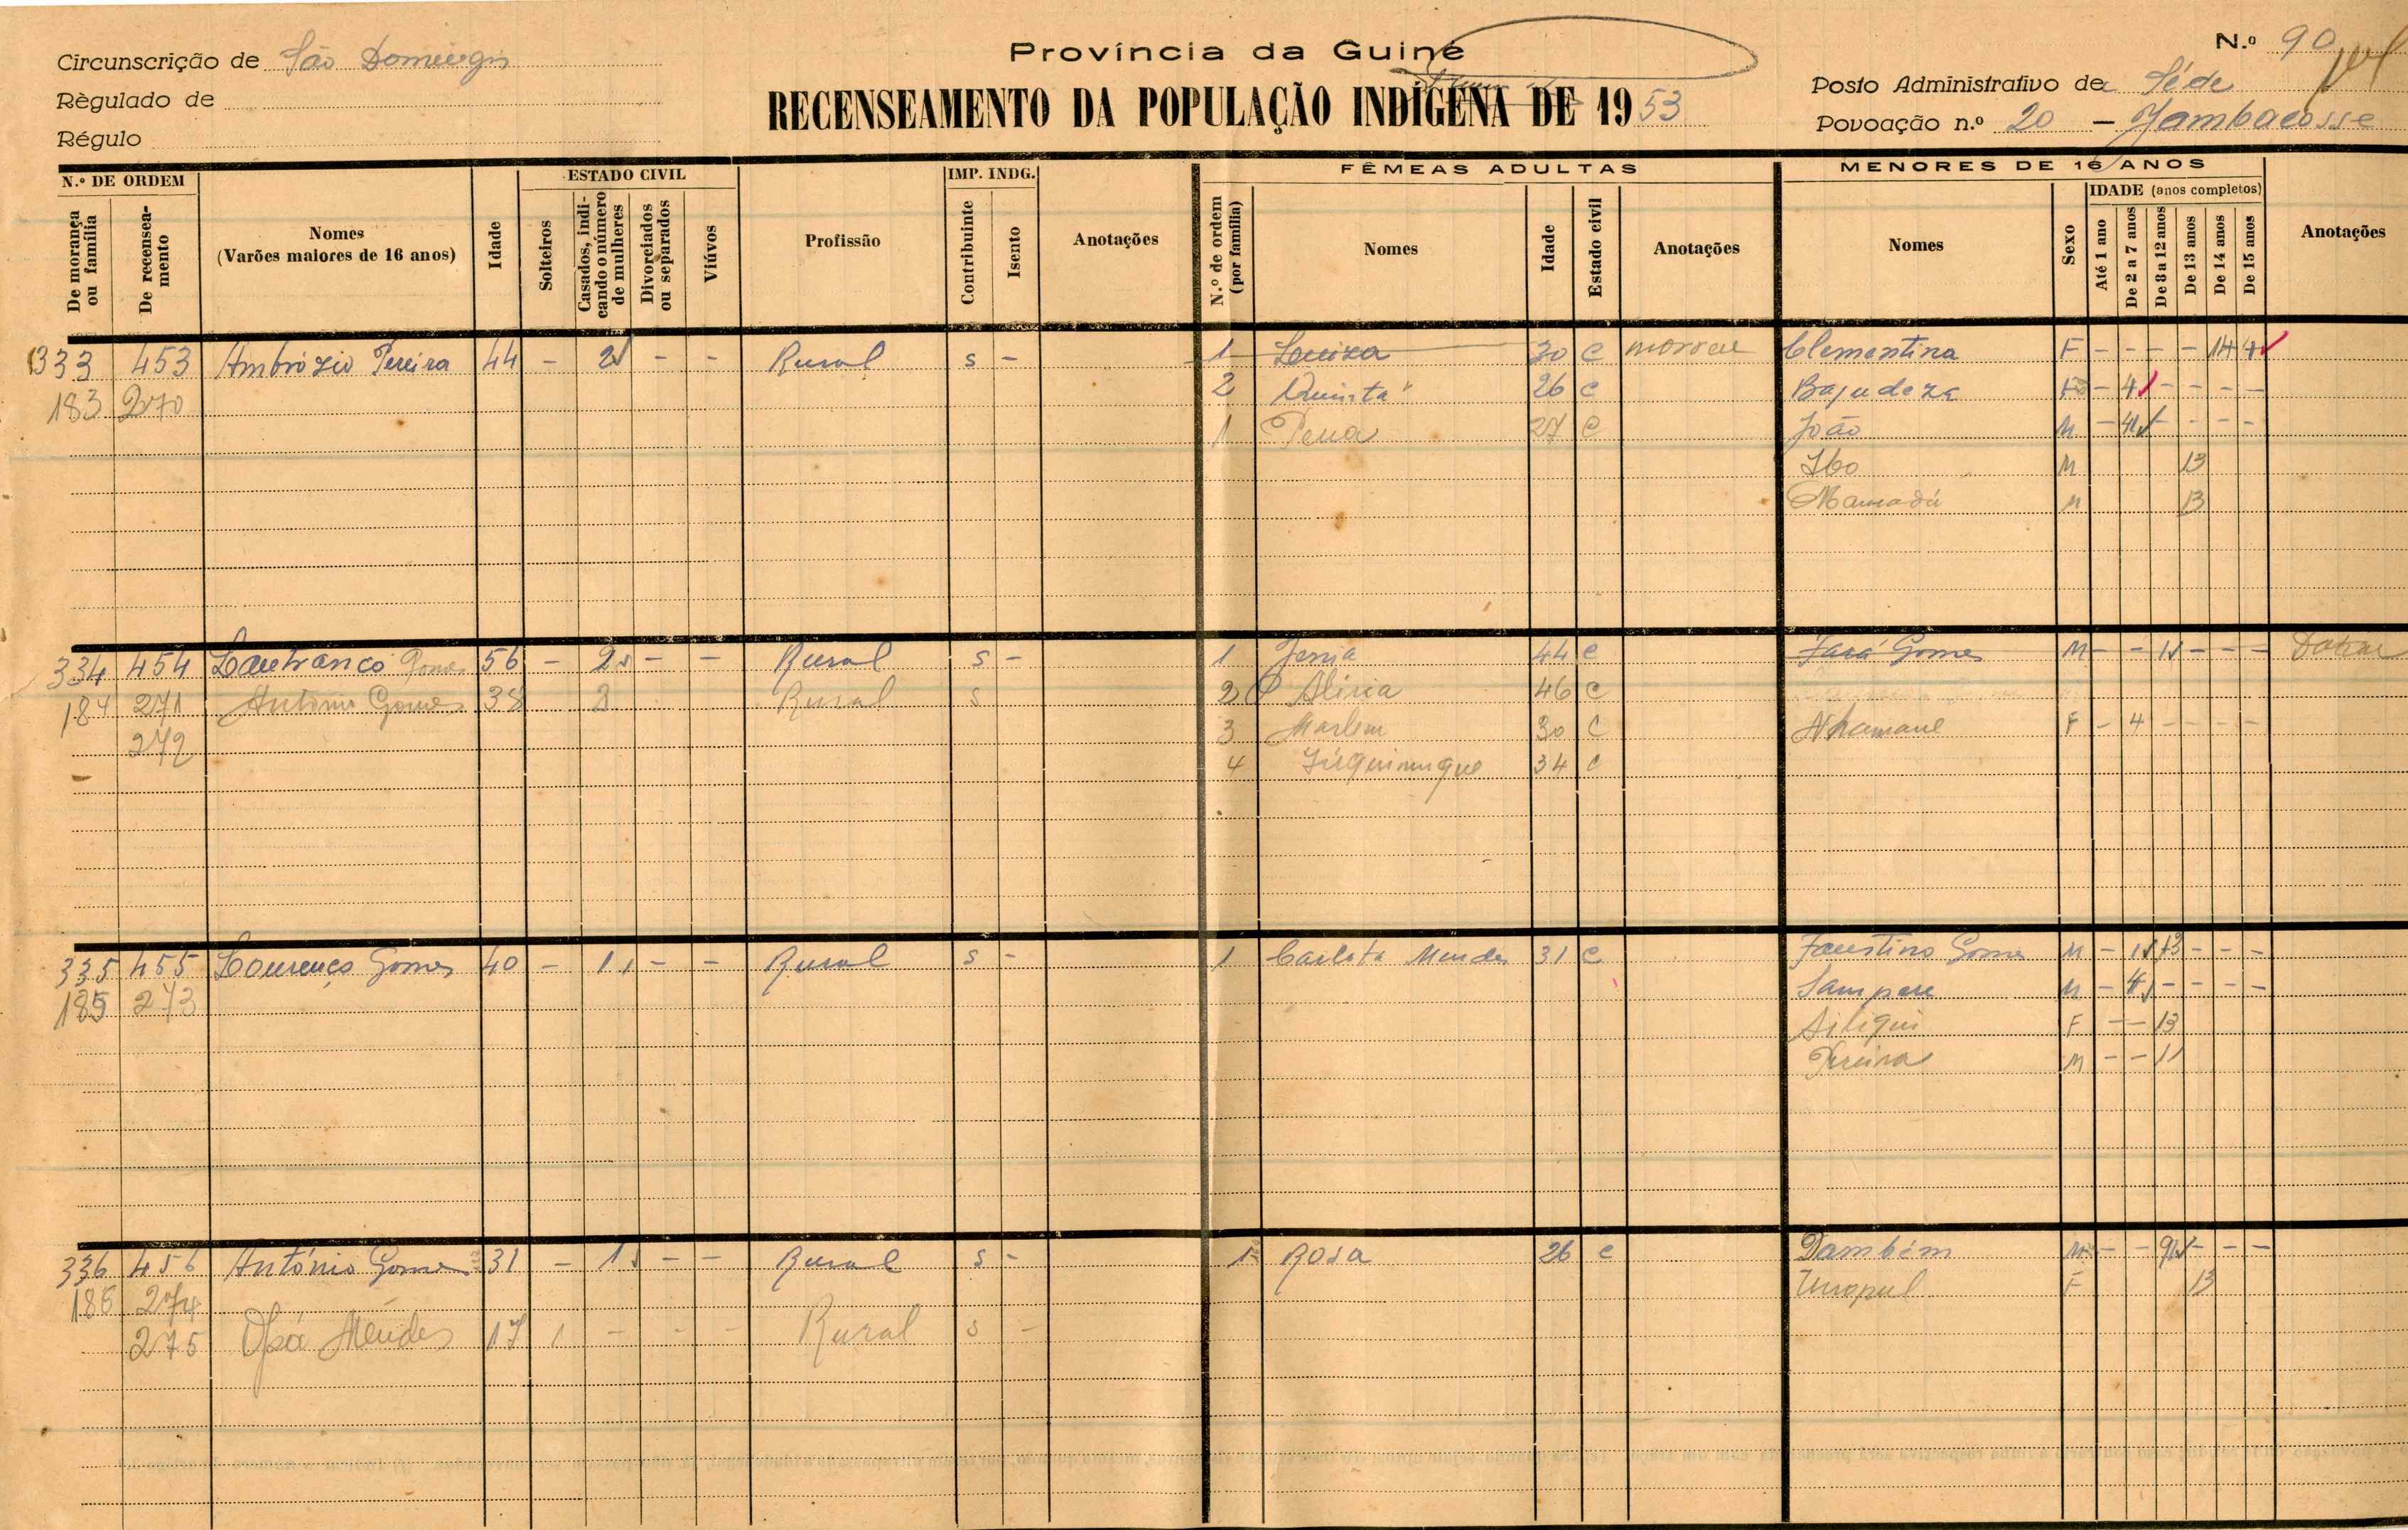 Província da Guiné
N.º 90
Circunscrição de São Domingos
Règulado de
Régulo
RECENSEAMENTO DA POPULAÇÃO INDÍGENA DE 1953
Posto Administrativo de Séde
Povoação n.º 20 – Jambacosse
N.º DE ORDEM
De morança ou família
De recensea-mento
Nomes
(Varões maiores de 16 anos)
Idade
ESTADO CIVIL
Solteiros
Casados, indi-cando o número de mulheres
Divorciados ou separados
Viúvos
Profissão
IMP. INDG.
Contribuinte
Isento
Anotações
FÊMEAS ADULTAS
N.º de ordem (por família)
Nomes
Idade
Estado civil
Anotações
MENORES DE 16 ANOS
Nomes
Sexo
IDADE (anos completos)
Até 1 ano
De 2 a 7 anos
De 8 a 12 anos
De 13 anos
De 14 anos
De 15 anos
Anotações
333 453 Ambrózio Pereira 44 - 2 - - Rural s - 1 Luiza 30 c morreu Clementina F - - - - 14
183 270 2 Quinta 26 c Bajudeza F - 4 - - - -
1 Pena 27 c João M - 4 - - - -
Ibo M 13
Mamadú M 13
334 454 Lanfranco Gomes 56 - 2 - - Rural s - 1 Jenia 44 c Fará Gomes M - - 11 - - - Dakar
184 271 António Gomes 38 2 Rural s 2 Alicia 46 c
272 3 Marlem 30 c Nhamane F - 4 - - - -
4 34 c
335 455 Lourenço Gomes 40 - 1 - - Rural s - 1 Carlota Mendes 31 c Faustino Gomes M - 13 - - -
185 273 Sampere M - 4 - - - -
Siliqui F - - 13
Pereira M - - 11
336 456 António Gomes 31 - 1 - - Rural s - 1 Rosa 26 c Dambém M - - 9 - - -
186 274 F 13
275 Mendes 17 1 - - - Rural s -